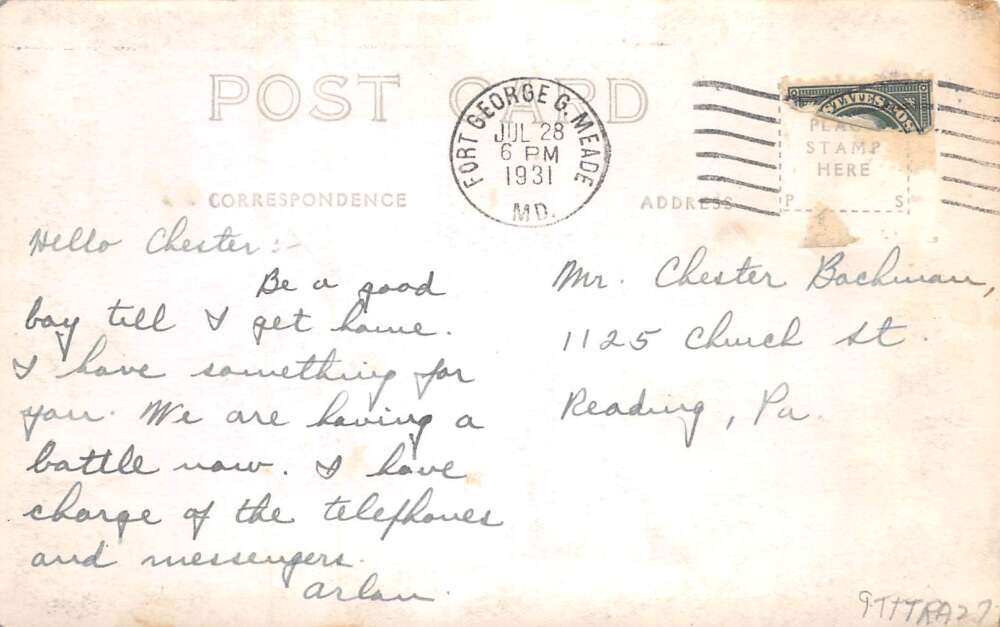 POST CARD
FORT GEORGE G. MEADE
JUL 28
6 PM
1931
MD.
PLACE
STAMP
HERE
P S
CORRESPONDENCE
ADDRESS
Hello Chester:-
Be a good
boy till I get home.
I have something for
you. We are having a
battle now. I have
charge of the telephones
and messengers.
Arlan.
Mr. Chester Bachman,
1125 Church St.
Reading, Pa.